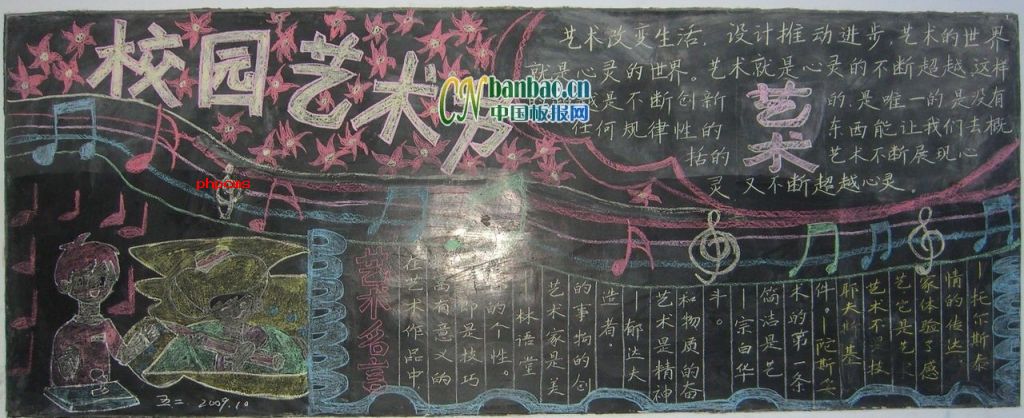 校园艺术节
CN banbao.cn
中国板报网
phpcms
艺术改变生活，设计推动进步，艺术的世界
就是心灵的世界。艺术就是心灵的不断超越，这样
是不断创新 的，是唯一的是没有
任何规律性的 东西能让我们去概
括的 艺术不断展现心
灵又不断超越心灵。
艺术
艺术名言
在艺术作品中
富有意义的
即是技巧
的个性。
—林语堂
艺术家是美
的事物的创
造者。
—郁达夫
艺术是精神
和物质的奋
斗。
—宗白华
简洁是艺
术的第一条
件。—陀斯妥
耶夫斯基
艺术不是技
艺，它是艺
家体验了感
情的传达
—托尔斯泰
五二 2009.10